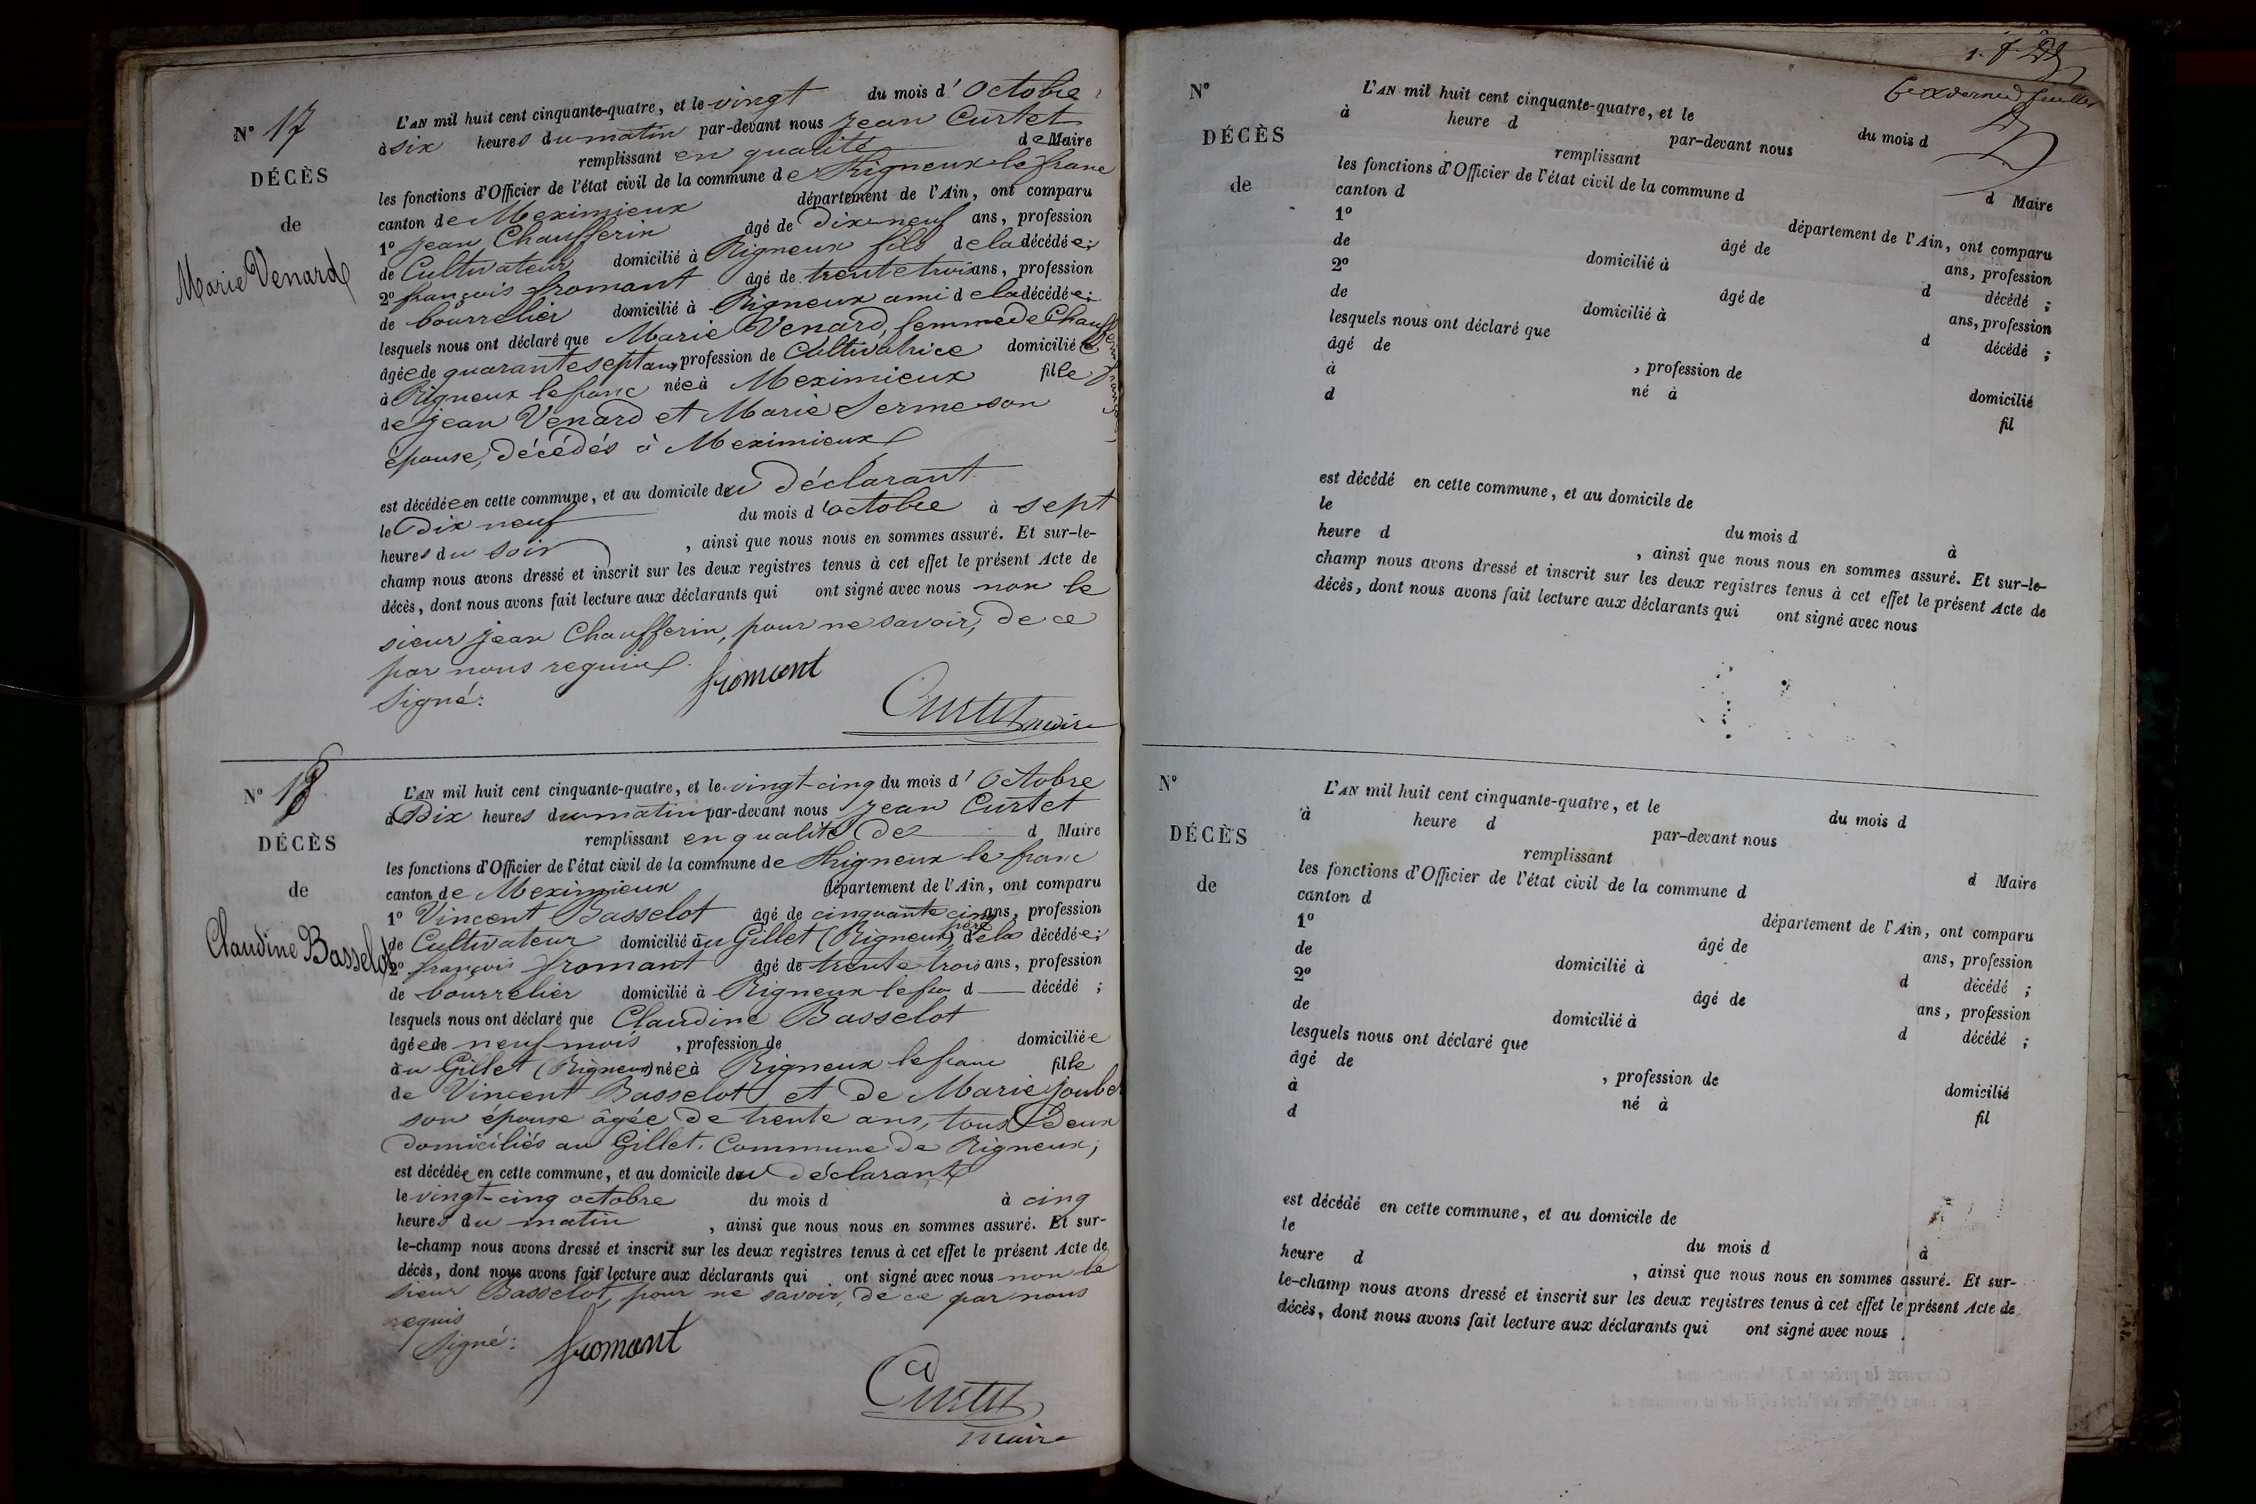 N° 17
DÉCÈS
de
Marie Venard
L'AN mil huit cent cinquante-quatre, et le vingt du mois d'Octobre
à six heures du matin par-devant nous Jean Curtet
remplissant en qualité de Maire
les fonctions d'Officier de l'état civil de la commune de Rigneux le franc
canton de Meximieux département de l'Ain, ont comparu
1° Jean Chaufferin âgé de dix neuf ans, profession
de Cultivateur domicilié à Rigneux fils de la décédée;
2° françois fromant âgé de trente trois ans, profession
de bourrelier domicilié à Rigneux ami de la décédée;
lesquels nous ont déclaré que Marie Venard, femme de Chaufferin
âgée de quarante sept ans, profession de Cultivatrice domiciliée
à Rigneux le franc née à Meximieux fille
de Jean Venard et Marie Sermeson
épouse, décédés à Meximieux
est décédée en cette commune, et au domicile du déclarant
le Dix neuf du mois d'octobre à sept
heures du soir, ainsi que nous nous en sommes assuré. Et sur-le-
champ nous avons dressé et inscrit sur les deux registres tenus à cet effet le présent Acte de
décès, dont nous avons fait lecture aux déclarants qui ont signé avec nous non le
sieur Jean Chaufferin, pour ne savoir, de ce
par nous requis.
Signé: fromant
Curtet maire
N° 18
DÉCÈS
de
Claudine Basselot
L'AN mil huit cent cinquante-quatre, et le vingt-cinq du mois d'Octobre
à Dix heures du matin par-devant nous Jean Curtet
remplissant en qualité de d Maire
les fonctions d'Officier de l'état civil de la commune de Rigneux le franc
canton de Meximieux département de l'Ain, ont comparu
1° Vincent Basselot âgé de cinquante cinq ans, profession
de Cultivateur domicilié au Gillet (Rigneux) père de la décédée;
2° françois fromant âgé de trente trois ans, profession
de bourrelier domicilié à Rigneux le fra d décédé ;
lesquels nous ont déclaré que Claudine Basselot
âgée de neuf mois, profession de domiciliée
au Gillet (Rigneux) née à Rigneux le franc fille
de Vincent Basselot et de Marie Jouber
son épouse âgée de trente ans, tous Deux
domiciliés au Gillet, Commune de Rigneux;
est décédée en cette commune, et au domicile du déclarant
le vingt-cinq octobre du mois d à cinq
heures du matin, ainsi que nous nous en sommes assuré. Et sur-
le-champ nous avons dressé et inscrit sur les deux registres tenus à cet effet le présent Acte de
décès, dont nous avons fait lecture aux déclarants qui ont signé avec nous non le
sieur Basselot, pour ne savoir, de ce par nous
requis
Signé: fromant
Curtet
Maire
feuillet
N°
DÉCÈS
de
L'AN mil huit cent cinquante-quatre, et le du mois d
à heure d par-devant nous
remplissant d Maire
les fonctions d'Officier de l'état civil de la commune d
canton d département de l'Ain, ont comparu
1° âgé de ans, profession
de domicilié à d décédé ;
2° âgé de ans, profession
de domicilié à d décédé ;
lesquels nous ont déclaré que
âgé de , profession de domicilié
à né à fil
d
est décédé en cette commune, et au domicile de
le du mois d à
heure d , ainsi que nous nous en sommes assuré. Et sur-le-
champ nous avons dressé et inscrit sur les deux registres tenus à cet effet le présent Acte de
décès, dont nous avons fait lecture aux déclarants qui ont signé avec nous
N°
DÉCÈS
de
L'AN mil huit cent cinquante-quatre, et le du mois d
à heure d par-devant nous
remplissant d Maire
les fonctions d'Officier de l'état civil de la commune d
canton d département de l'Ain, ont comparu
1° âgé de ans, profession
de domicilié à d décédé ;
2° âgé de ans, profession
de domicilié à d décédé ;
lesquels nous ont déclaré que
âgé de , profession de domicilié
à né à fil
d
est décédé en cette commune, et au domicile de
le du mois d à
heure d , ainsi que nous nous en sommes assuré. Et sur-
le-champ nous avons dressé et inscrit sur les deux registres tenus à cet effet le présent Acte de
décès, dont nous avons fait lecture aux déclarants qui ont signé avec nous